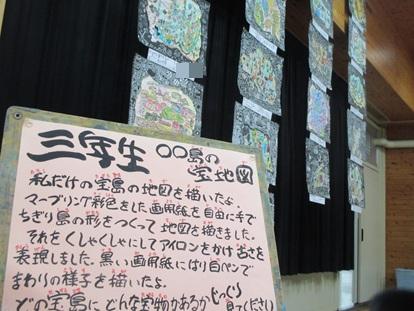 三年生 〇〇島の宝地図
私だけの宝島の地図を描いたよ。
マーブリング彩色をした画用紙を自由に手で
ちぎり島の形をつくって地図を描きました。
それをくしゃくしゃにしてアイロンをかけ古さを
表現しました。黒い画用紙にはり白ペンで
まわりの様子を描いたよ。
どの宝島にどんな宝物があるか じっくり見てください